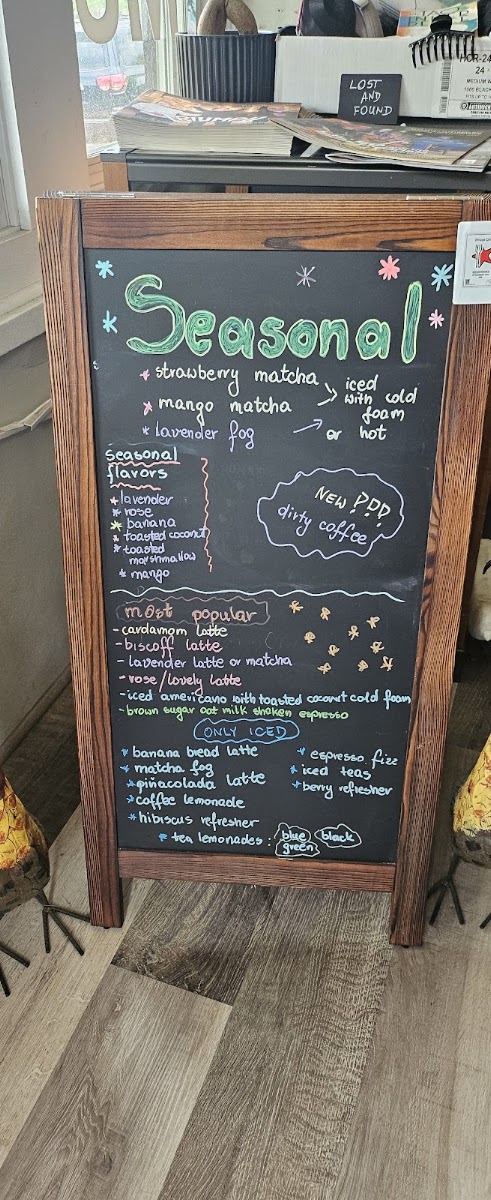 LOST
AND
FOUND
Seasonal
* strawberry matcha
* mango matcha
* lavender fog
iced
with cold
foam
or hot
Seasonal
flavors
* lavender
* rose
* banana
* toasted coconut
* toasted
marshmallow
* mango
NEW!!!
dirty coffee
most popular
- cardamom latte
- biscoff latte
- lavender latte or matcha
- rose/lovely latte
- iced americano with toasted coconut cold foam
- brown sugar oat milk shaken espresso
ONLY ICED
* banana bread latte
* matcha fog
* pinacolada latte
* coffee lemonade
* hibiscus refresher
* espresso fizz
* iced teas
* berry refresher
* tea lemonades: blue black
green